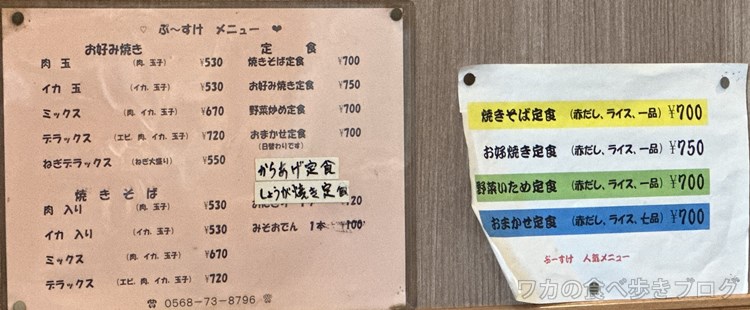 ♡ ぶ～すけ メニュー ❤
お好み焼き
肉 玉 (肉、玉子) ¥530
イカ 玉 (イカ、玉子) ¥530
ミックス (肉、イカ、玉子) ¥670
デラックス (エビ、肉、イカ、玉子) ¥720
ねぎデラックス (ねぎ大盛り) ¥550
焼 き そ ば
肉 入り (肉、玉子) ¥530
イカ 入り (イカ、玉子) ¥530
ミックス (肉、イカ、玉子) ¥670
デラックス (エビ、肉、イカ、玉子) ¥720
定 食
焼きそば定食 ¥700
お好み焼き定食 ¥750
野菜炒め定食 ¥700
おまかせ定食 ¥700
(日替わりです)
からあげ定食
しょうが焼き定食
20
みそおでん 1本 ¥100
☎ 0568-73-8796 ☎
焼きそば定食 (赤だし、ライス、一品) ¥700
お好焼き定食 (赤だし、ライス、一品) ¥750
野菜いため定食 (赤だし、ライス、一品) ¥700
おまかせ定食 (赤だし、ライス、七品) ¥700
ぶーすけ 人気メニュー
ワカの食べ歩きブログ